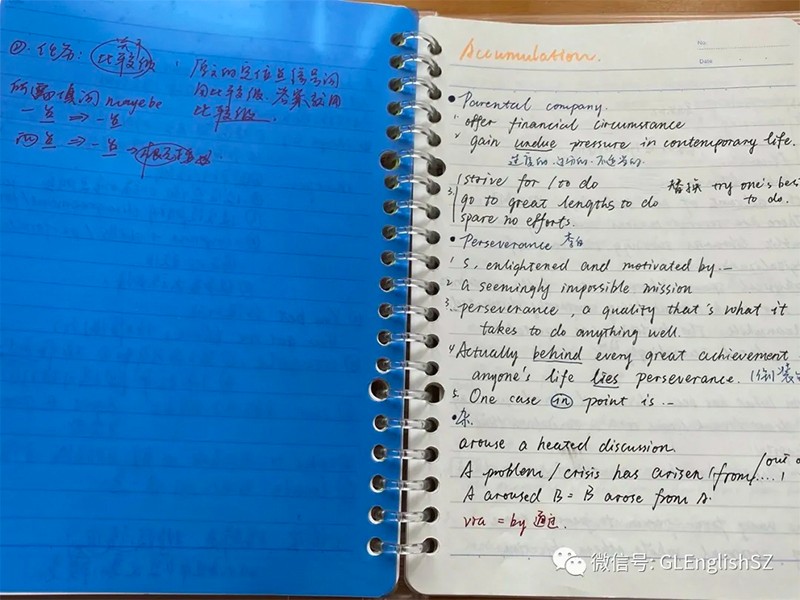 比较级
原文的定位点信号词
用比较级. 答案就用
比较级.
maybe
一点 ⇒ 一点
两点 ⇒ 一点 →
Accumulation.
No:
Date
• Parental company.
1 offer financial circumstance
2 gain undue pressure in contemporary life.
过度的. 过分的. 不适当的.
3. strive for / to do
go to great lengths to do
spare no efforts.
替换 try one's best
to do.
• Perseverance 李白
1 S, enlightened and motivated by...
2 a seemingly impossible mission
3. perseverance, a quality that's what it
takes to do anything well.
4 Actually behind every great achievement
anyone's life lies perseverance. (倒装
5. One case in point is...
• 杂.
arouse a heated discussion.
A problem / crisis has arisen (from / out o
....)
A aroused B = B arose from A.
via = by 通过.
微信号: GLEnglishSZ